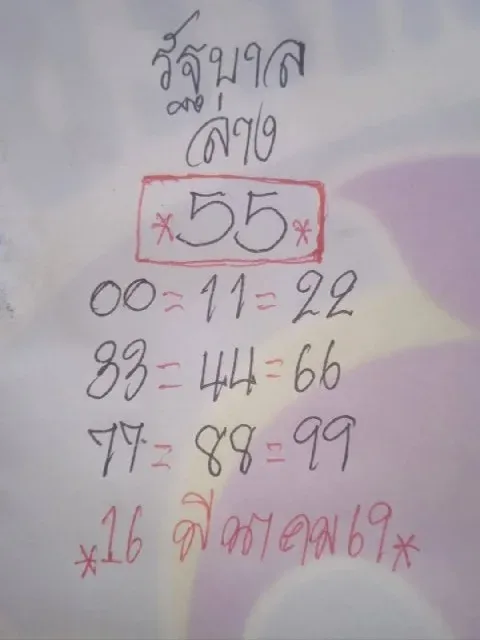 รัฐบาล
ล่าง
*55*
00=11=22
33=44=66
77=88=99
*16 มีนาคม69*